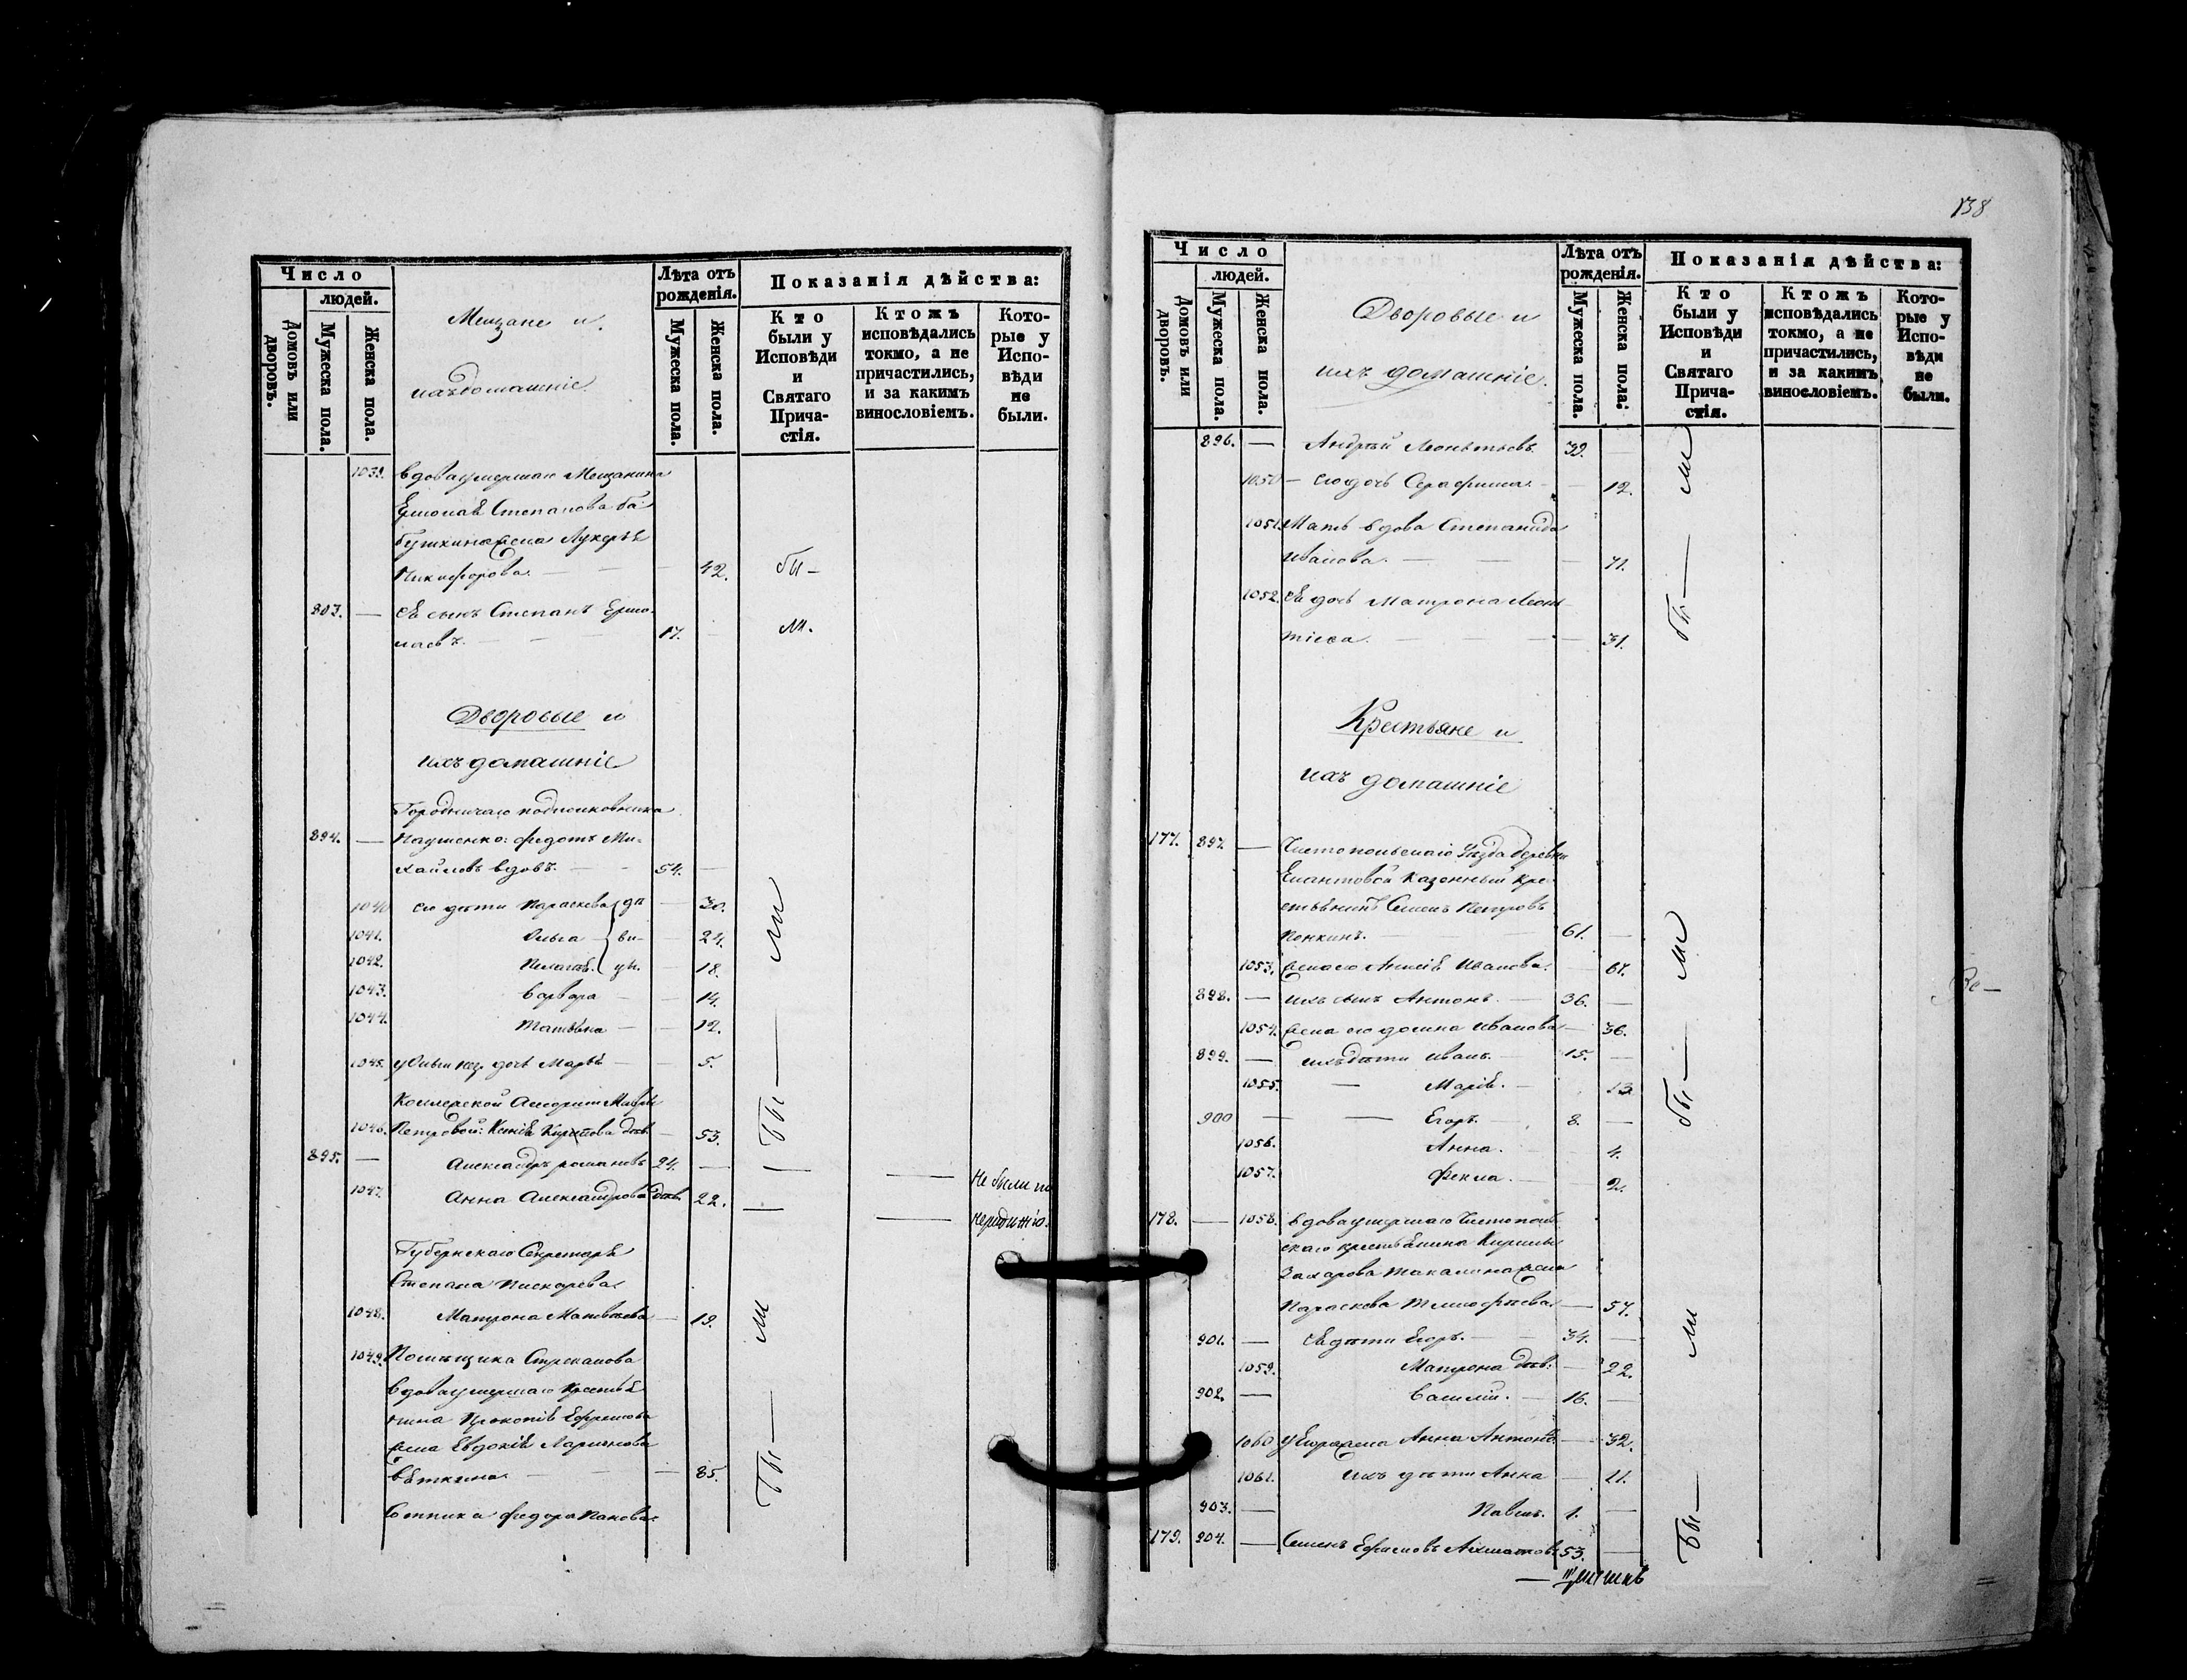 Число
людей.
Домовъ или дворовъ.
Мужеска пола.
Женска пола.
Мещане и
ихъ домашніе
Лѣта отъ рожденія.
Мужеска пола.
Женска пола.
Показанія дѣйства:
Кто были у Исповѣди и Святаго Прича-стія.
Ктожъ исповѣдались токмо, а не причастились, и за какимъ винословіемъ.
Кото-рые у Испо-вѣди не были.
1039. вдова умершаго Мещанина
Ермолая Степанова Ба-
бушкина жена Лукерья
Никифорова. — 42. бы-
893. — ея сынъ Степанъ Ермо-
лаевъ. — 17. ли.
Дворовые и
ихъ домашніе
Городничаго подполковника
894. — : Федотъ Ми-
хайловъ вдовъ. — 54. —
1040 его дѣти Параскева дѣ — 30.
1041. Ольга ви- — 24.
1042. Пелагея цы. — 18.
1043. Варвара — 14.
1044. Татьяна — 12.
1045. у Ольги нез. дочь Марья — 5.
Бы — ли
Коллежской Асесорши Марьи
1046. Петровой: Ксенія дѣв. — 53.
895. — Александръ Романовъ 24. —
1047. Анна Александрова дѣв. 22. —
Не были по
нерадѣнію.
Губернскаго Секретаря
Степана Пискарева
1048. Матрона Матвѣева — 19.
1049. Помѣщика Стрекалова
вдова умершаго крестья
нина Прокопія Ефремова
жена Евдокія Ларіонова
Вѣткина — 85.
Бы — ли
Сотника Федора Панова.
138
Число
людей.
Домовъ или дворовъ.
Мужеска пола.
Женска пола.
Дворовые и
ихъ домашніе.
Лѣта отъ рожденія.
Мужеска пола.
Женска пола.
Показанія дѣйства:
Кто были у Исповѣди и Святаго Прича-стія.
Ктожъ исповѣдались токмо, а не причастились, и за какимъ винословіемъ.
Кото-рые у Испо-вѣди не были.
896. — Андрей Леонтьевъ 39. —
1050 — его дочь Серафима. — 12.
1051. Мать вдова Степанида
Иванова. — 71.
1052. ея дочь Матрона Леон-
тіева. — 31.
Бы — ли
Крестьяне и
ихъ домашніе
177. 897. — Чистопольскаго Уѣзда деревни
Елантовой казенный кре-
стьянинъ Семенъ Петровъ
Понкинъ. — 61. —
1053. жена его Агнія Иванова. — 61.
898. — ихъ сынъ Антонъ. — 36. —
1054. жена его Домна Иванова — 36.
899. — ихъ дѣти Иванъ. — 15. —
1055. — Марія. — 13
900 — — Егоръ. — 8. —
1056. Анна. 4.
1057. Фекла. 2.
Бы — ли
178. — 1058. вдова умершаго Чистополь
скаго крестьянина Кирилы
Захарова жена
Параскева Тимофѣева. — 57.
901. — ея дѣти Егоръ. — 34. —
1059. Матрона дѣв. — 22.
902. — Василій. — 16. —
1060 у Егора жена Анна Антонов — 32.
1061. ихъ дѣти Анна — 11.
903. — Павелъ. 1. —
179. 904. — Семенъ Ефремовъ 53. —
Бы — ли